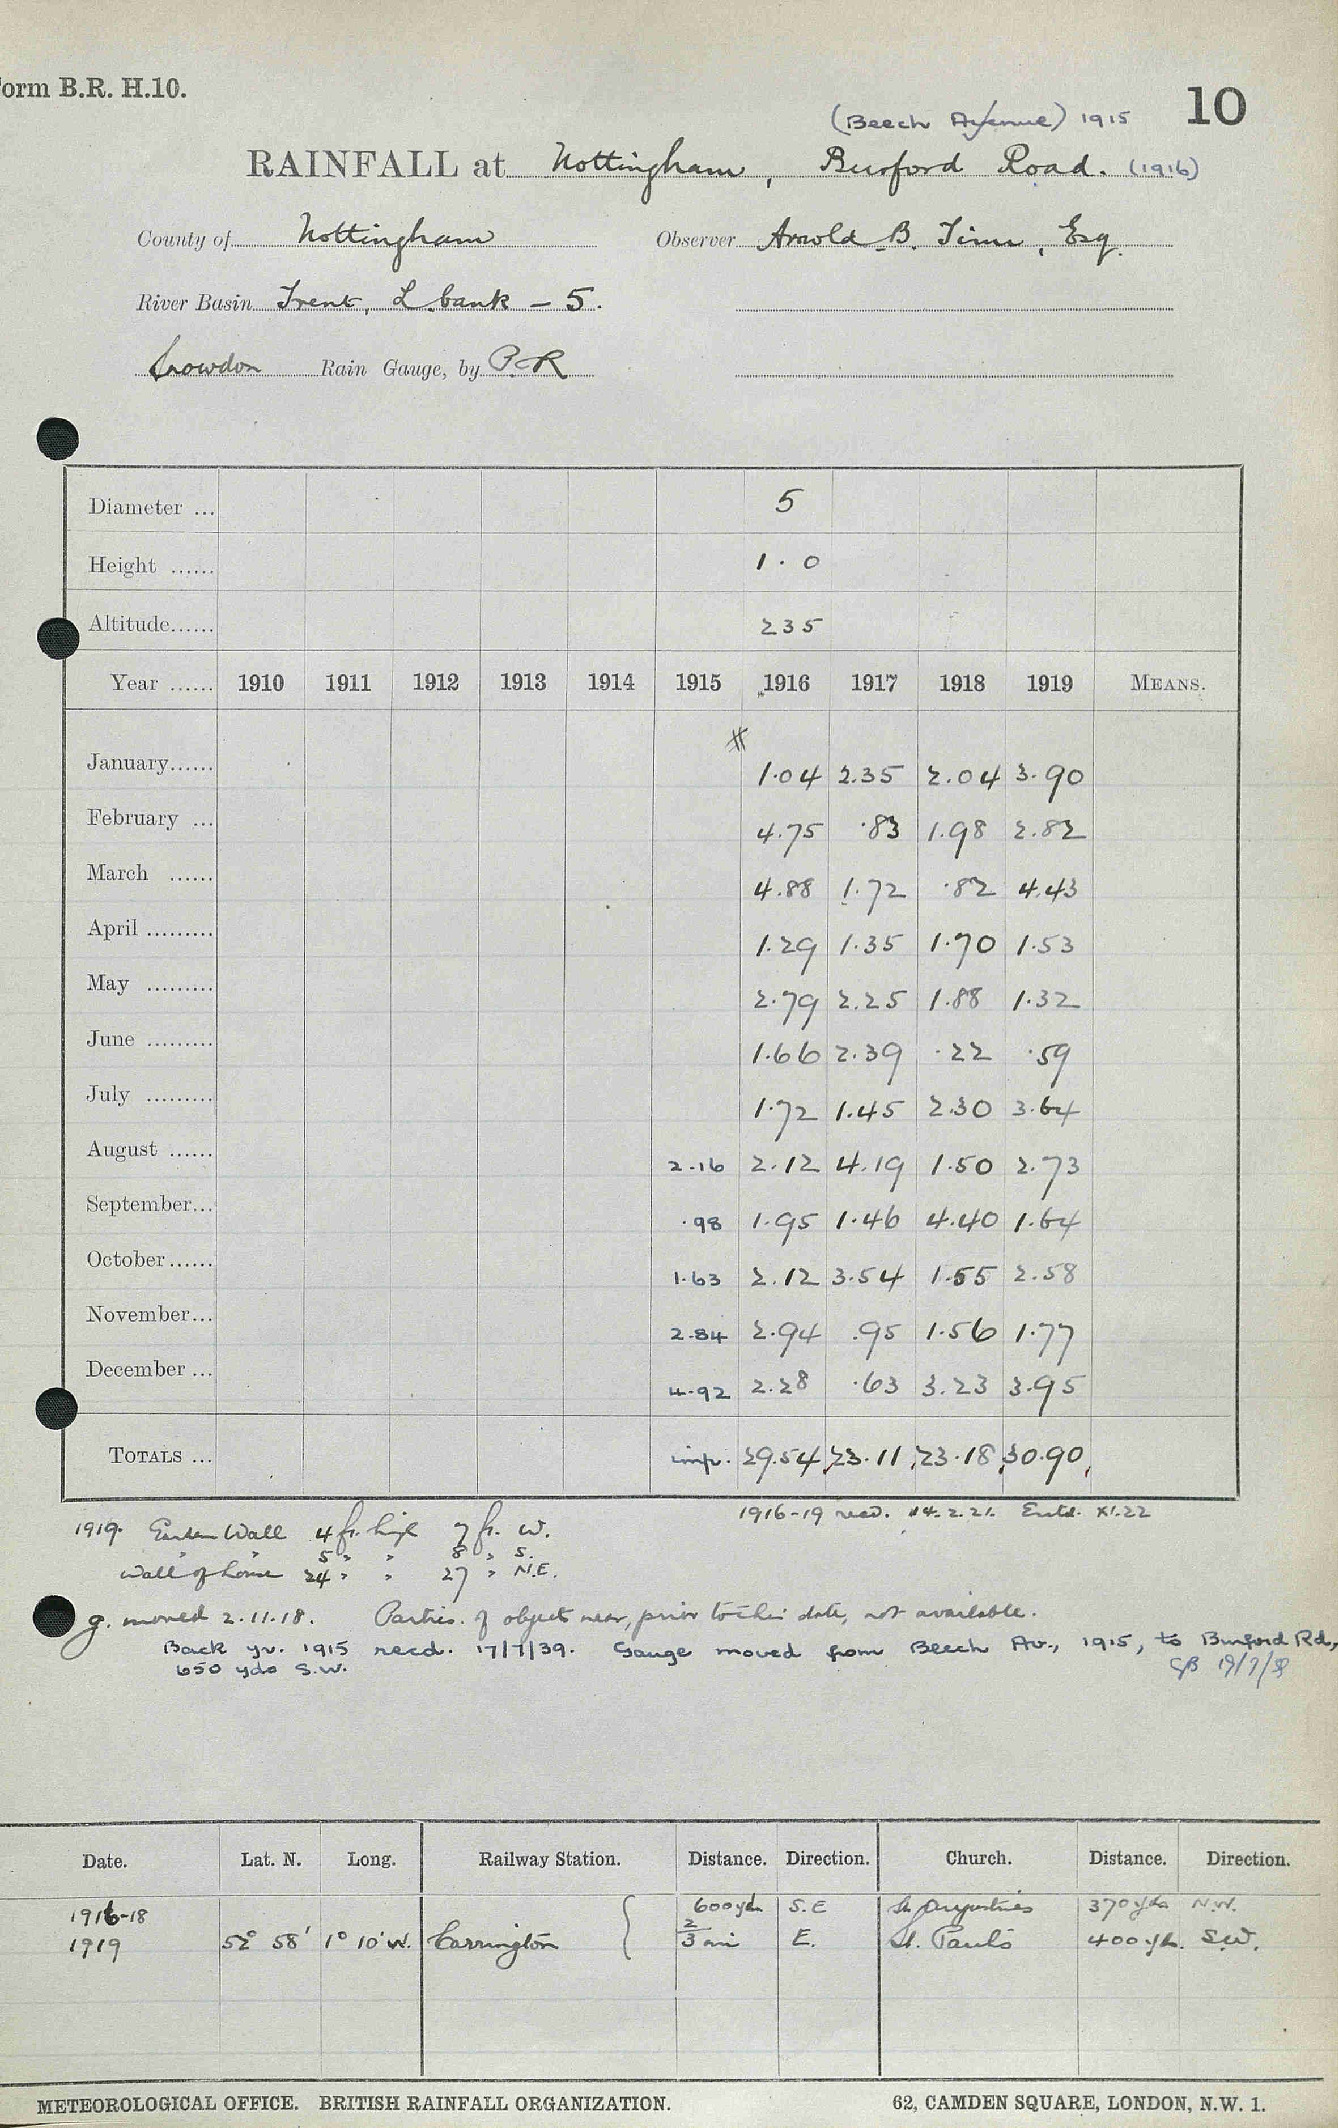 Form B.R. H.10.
10
(Beech Avenue) 1915
RAINFALL at Nottingham, Burford Road. (1916)
County of Nottingham Observer Arnold B. Tinn, Esq.
River Basin Trent, L bank – 5.
Snowdon Rain Gauge, by P.R
Diameter ... 5
Height ...... 1.0
Altitude...... 235
Year ...... 1910 1911 1912 1913 1914 1915 1916 1917 1918 1919 MEANS.
January...... 1.04 2.35 2.04 3.90
February ... 4.75 .83 1.98 2.82
March ...... 4.88 1.72 .82 4.43
April ......... 1.29 1.35 1.70 1.53
May ......... 2.79 2.25 1.88 1.32
June ......... 1.66 2.39 .22 .59
July ......... 1.72 1.45 2.30 3.64
August ...... 2.16 2.12 4.19 1.50 2.73
September... .98 1.95 1.46 4.40 1.64
October...... 1.63 2.12 3.54 1.55 2.58
November... 2.84 2.94 .95 1.56 1.77
December ... 4.92 2.28 .63 3.23 3.95
TOTALS ... imp. 29.54 23.11 23.18 30.90
1916-19 recd. 14.2.21. Entd. XI.22
1919. Garden Wall 4 ft. high 7 ft. W.
" " 5 " " 8 " S.
Wall of house 24 " " 27 " N.E.
g. moved 2.11.18. Partics. of objects near, prior to this date, not available.
Back yr. 1915 recd. 17/7/39. Gauge moved from Beech Av., 1915, to Burford Rd.,
650 yds S.W.
Date. Lat. N. Long. Railway Station. Distance. Direction. Church. Distance. Direction.
1916-18 600 yds S.E St. Augustines 370 yds N.W.
1919 52° 58' 1° 10' W. Carrington 2/3 mi E. St. Paul's 400 yds. S.W.
METEOROLOGICAL OFFICE. BRITISH RAINFALL ORGANIZATION. 62, CAMDEN SQUARE, LONDON, N.W. 1.